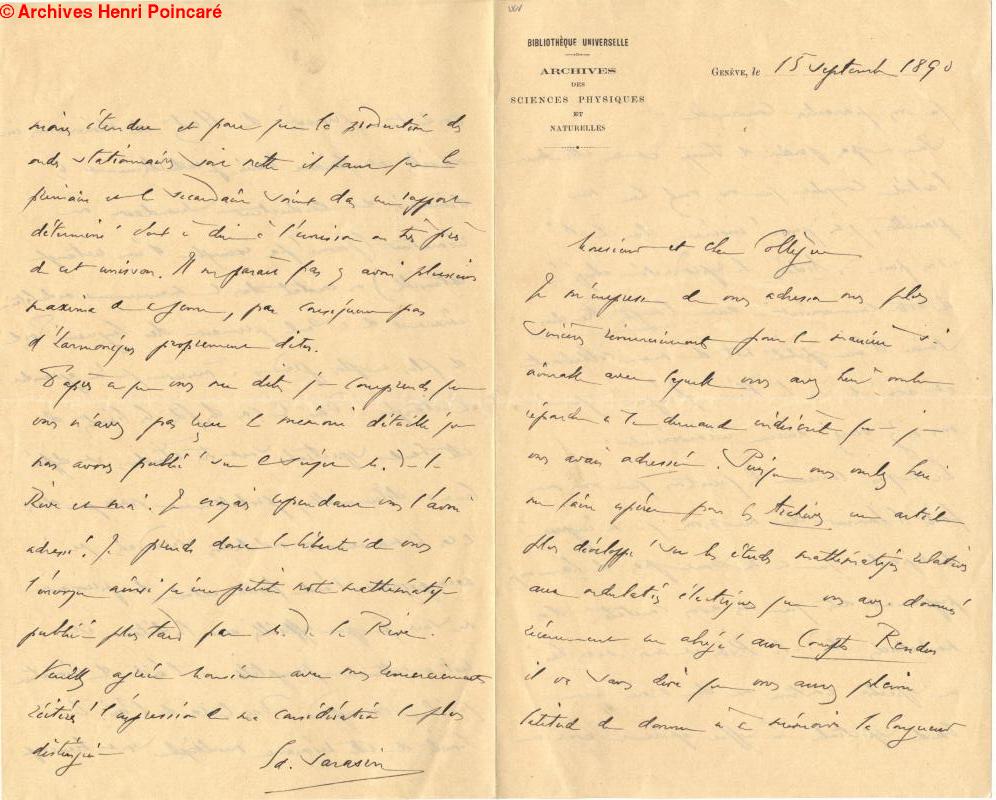 © Archives Henri Poincaré
BIBLIOTHÈQUE UNIVERSELLE
ARCHIVES
DES
SCIENCES PHYSIQUES
ET
NATURELLES
GENÈVE, le 15 septembre 1890
Monsieur et cher Collègue
Je m'empresse de vous adresser nos plus
sincères remerciements pour la manière si
aimable avec laquelle vous avez bien voulu
répondre à la demande indiscrète que je
vous avais adressée. Puisque vous voulez bien
me faire espérer pour les Archives un article
plus développé sur les études mathématiques relatives
aux ondulations électriques que vous avez données
récemment en abrégé aux Comptes Rendus
il va sans dire que vous aurez pleine
latitude de donner à ce mémoire la longueur
moins étendue et pour que la production des
ondes stationnaires soit nette il faut que le
primaire et le secondaire soient dans un rapport
déterminé c'est à dire à l'unisson ou très près
de cet unisson. Il ne paraît pas y avoir plusieurs
maxima de ce genre, par conséquent pas
d'harmoniques proprement dites.
D'après ce que vous me dites je comprends que
vous n'avez pas reçu le mémoire détaillé que
nous avons publié sur ce sujet M. de la
Rive et moi. Je croyais cependant vous l'avoir
adressé. Je prends donc la liberté de vous
l'envoyer ainsi qu'une petite note mathématique
publiée plus tard par M. de la Rive.
Veuillez agréer Monsieur avec mes remerciements
réitérés l'expression de ma considération la plus
distinguée
Ed. Sarasin